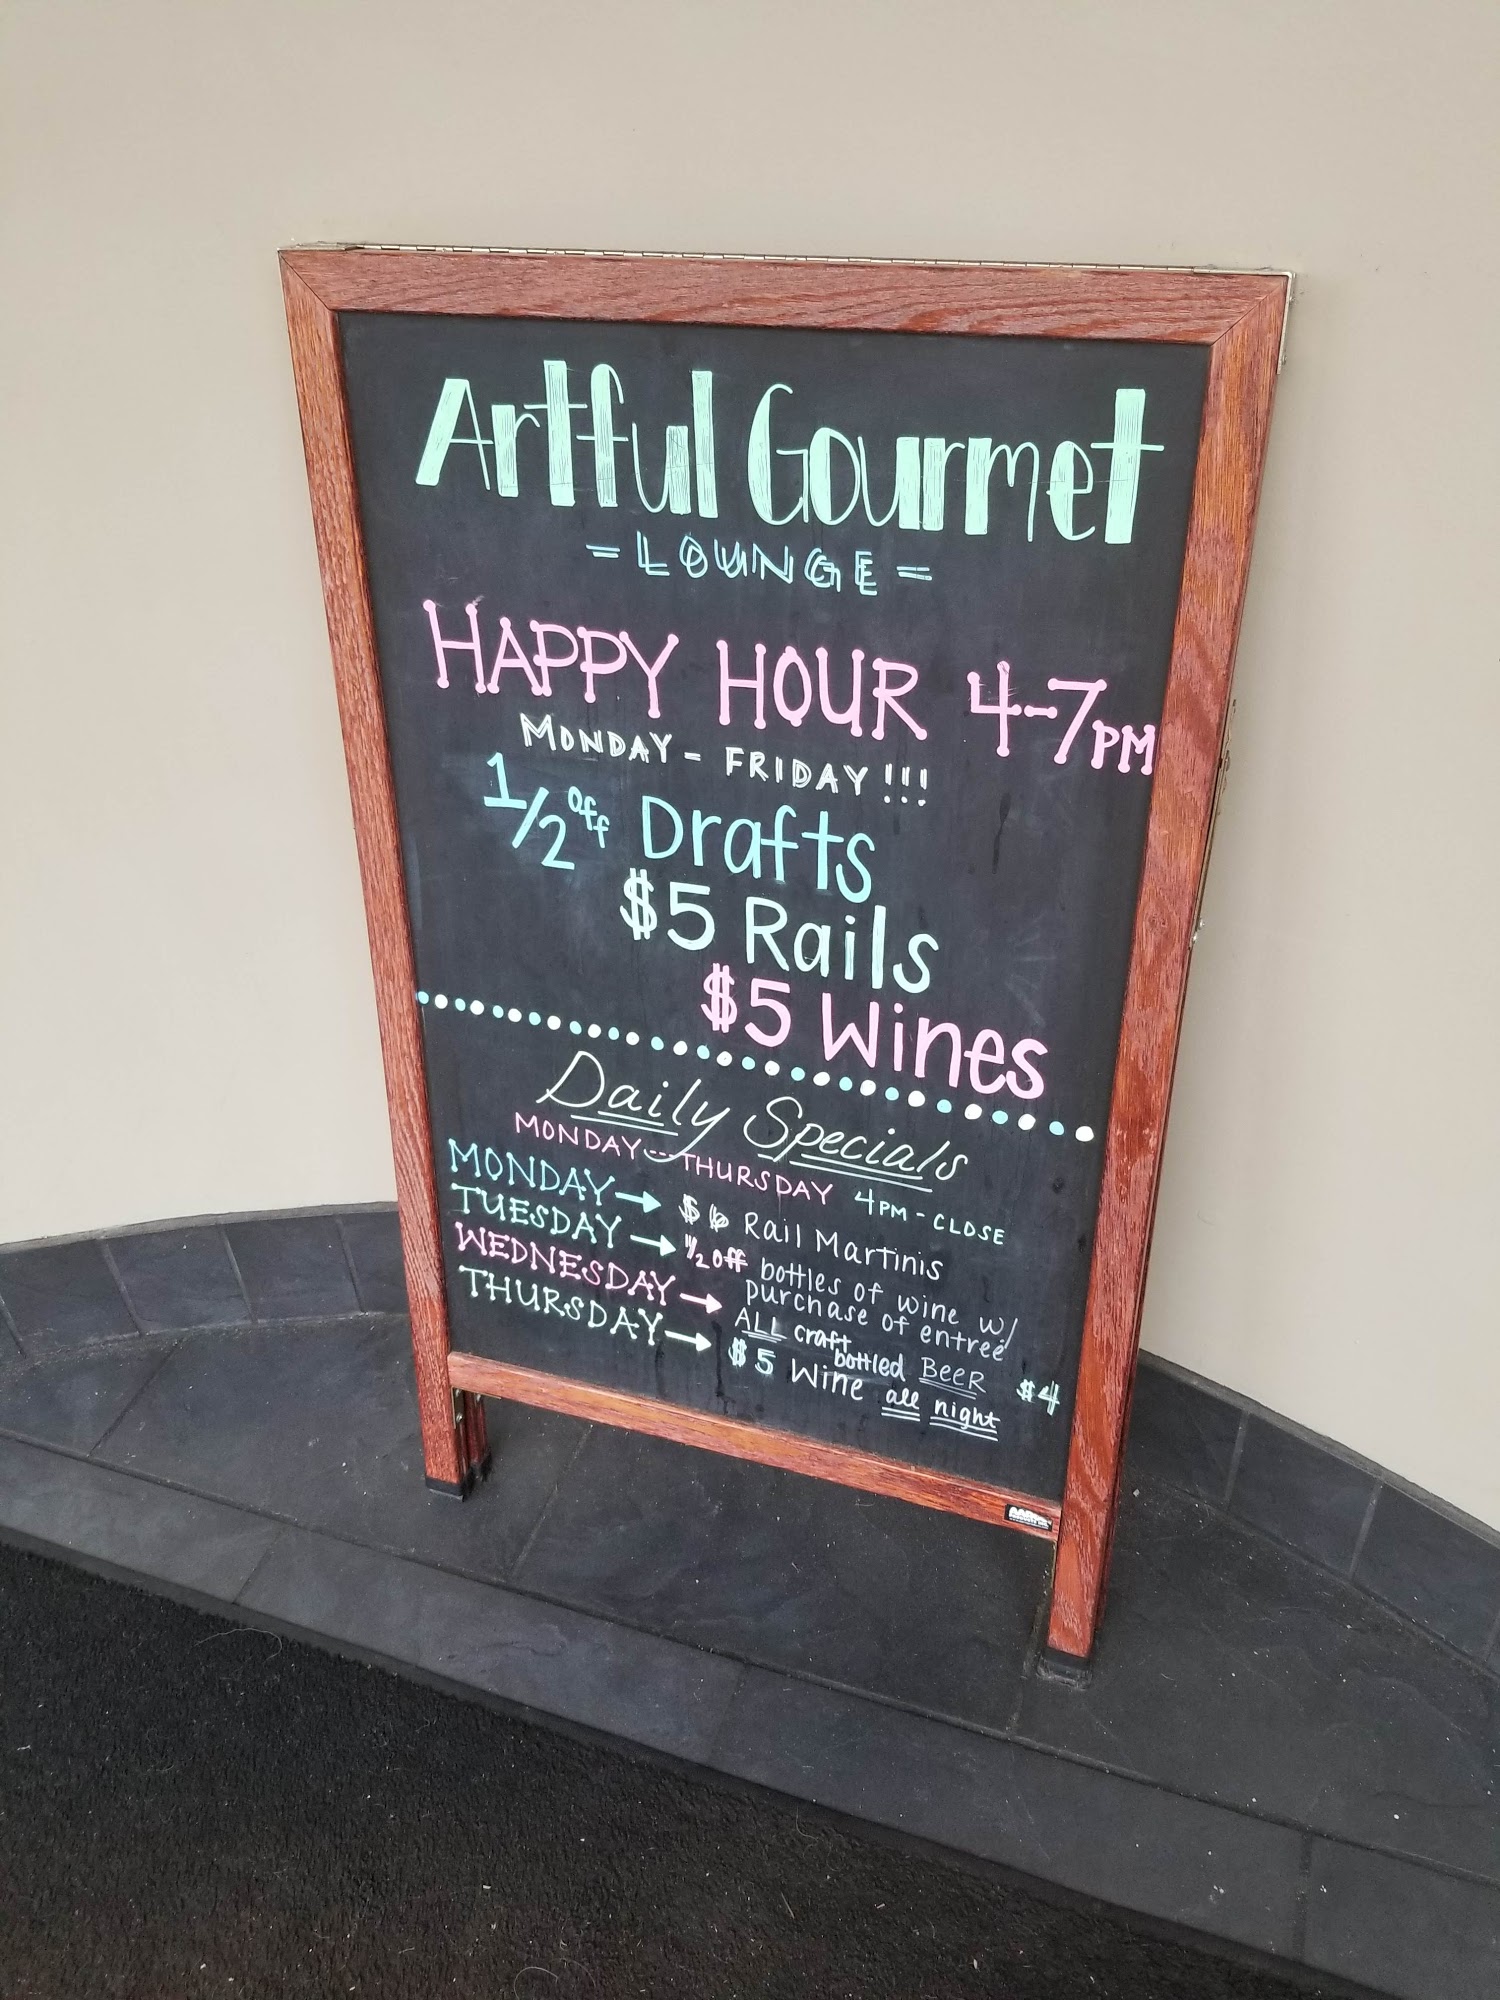 Artful Gourmet
= LOUNGE =
HAPPY HOUR 4-7PM
MONDAY - FRIDAY!!!
1/2 off Drafts
$5 Rails
$5 Wines
Daily Specials
MONDAY --- THURSDAY 4PM - CLOSE
MONDAY → $6 Rail Martinis
TUESDAY → 1/2 off bottles of wine w/
purchase of entreé
WEDNESDAY → ALL craft bottled BEER $4
THURSDAY → $5 Wine all night